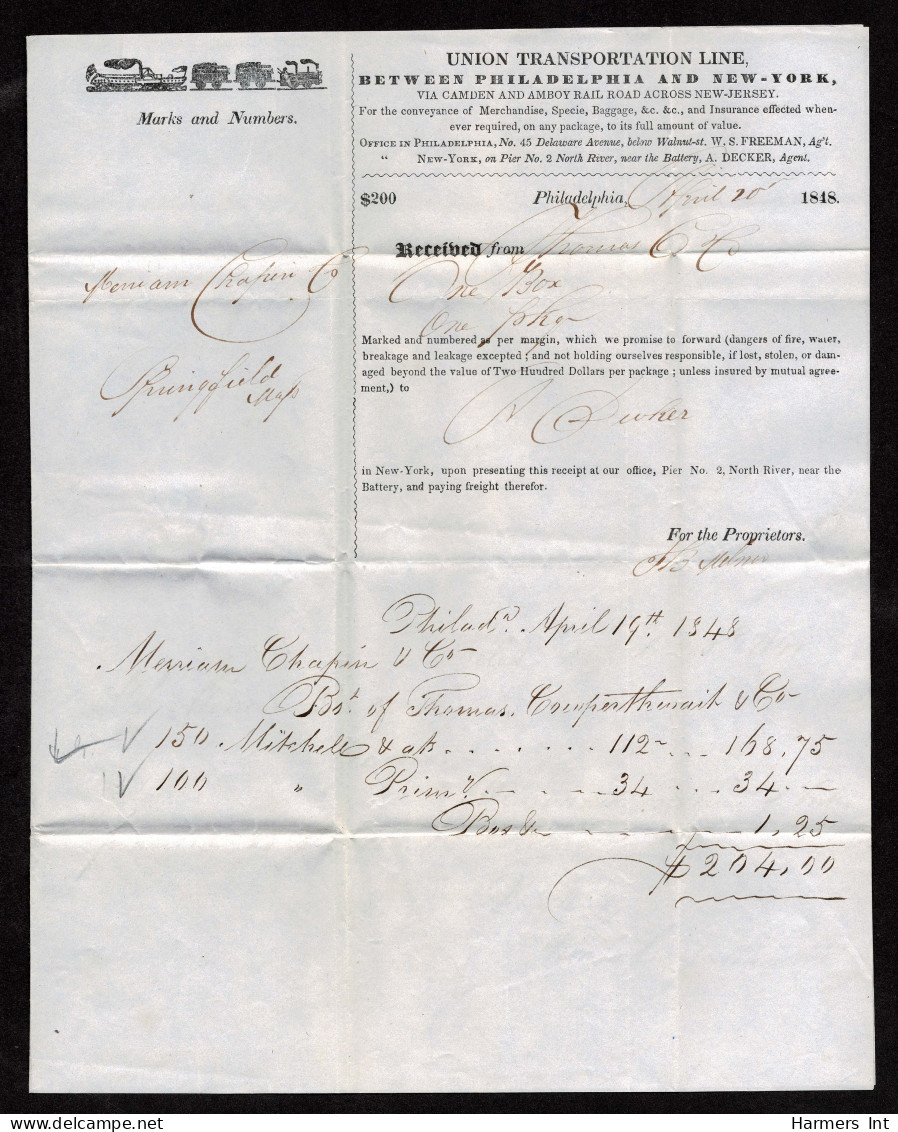 Marks and Numbers.
Merriam Chapin & Co
Springfield
Mass
UNION TRANSPORTATION LINE,
BETWEEN PHILADELPHIA AND NEW-YORK,
VIA CAMDEN AND AMBOY RAIL ROAD ACROSS NEW-JERSEY.
For the conveyance of Merchandise, Specie, Baggage, &c. &c., and Insurance effected when-
ever required, on any package, to its full amount of value.
OFFICE IN PHILADELPHIA, No. 45 Delaware Avenue, below Walnut-st. W. S. FREEMAN, Ag't.
“ NEW-YORK, on Pier No. 2 North River, near the Battery, A. DECKER, Agent.
$200 Philadelphia, April 20 1848.
Received from Thomas C & Co
One Box
One pkg
Marked and numbered as per margin, which we promise to forward (dangers of fire, water,
breakage and leakage excepted; and not holding ourselves responsible, if lost, stolen, or dam-
aged beyond the value of Two Hundred Dollars per package; unless insured by mutual agree-
ment,) to
A Decker
in New-York, upon presenting this receipt at our office, Pier No. 2, North River, near the
Battery, and paying freight therefor.
For the Proprietors.
Philada. April 19th. 1848
Merriam Chapin & Co
Bot. of Thomas, Cowperthwait & Co
150 Mitchells 112 168.75
100 " Prim 34 34.
Box 1.25
$204.00
Harmers Int